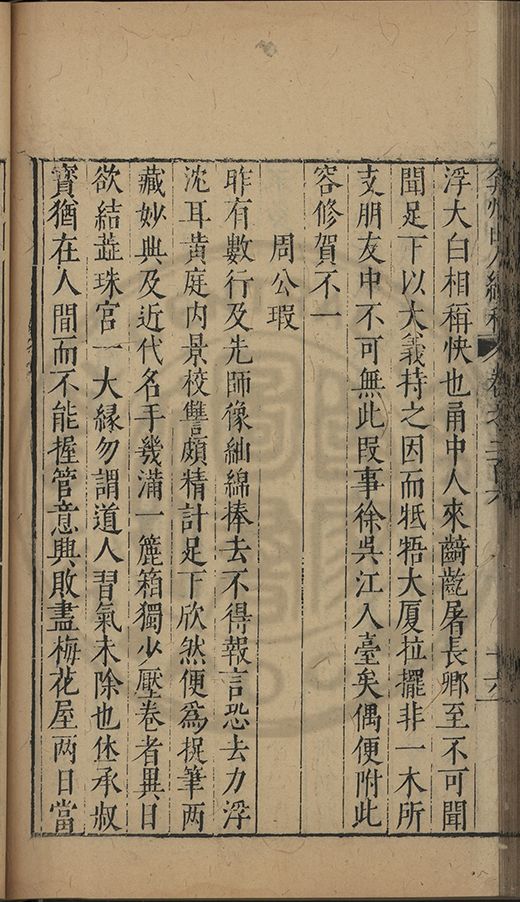 弇州山人續稿 卷之二百六 十六
浮大白相稱快也甬中人來齮齕屠長卿至不可聞
聞足下以大義持之因而牴牾大厦拉擺非一木所
支朋友中不可無此段事徐吳江入臺矣偶便附此
容修賀不一
周公瑕
昨有數行及先師像紬綿捧去不得報言恐去力浮
沈耳黄庭内景校讐頗精計足下欣然便爲捉筆两
藏妙典及近代名手幾滿一簏箱獨少壓卷者異日
欲結蕋珠宮一大縁勿謂道人習氣未除也休承叔
寳猶在人間而不能握管意興敗盡梅花屋两日當